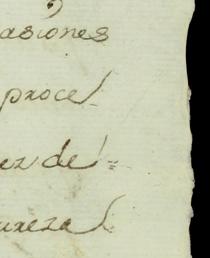 asiones
proce
er de
ureza